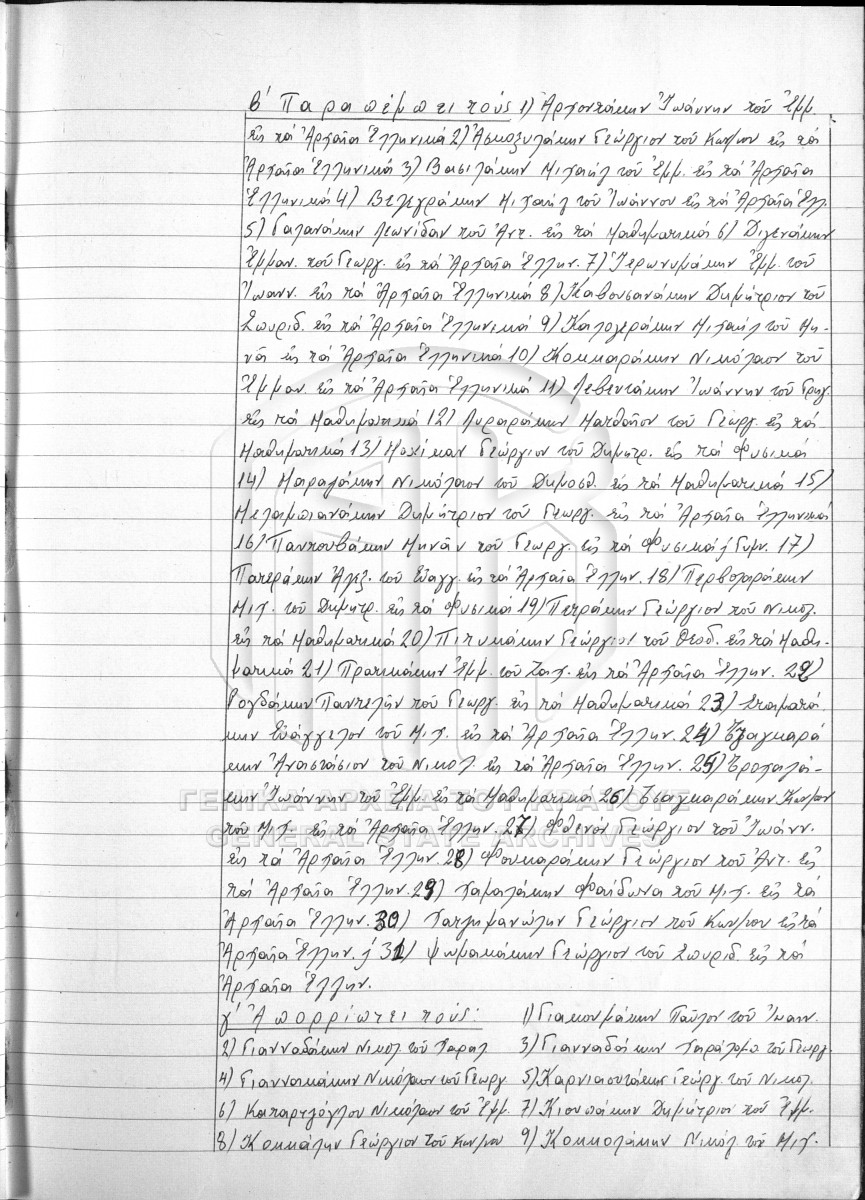 β' Παραπέμπει τούς 1) Ἀρχοντάκην Ἰωάννην τοῦ Ἐμμ.
εἰς τά Ἀρχαῖα Ἑλληνικά 2) Ἀσκοξυλάκην Γεώργιον τοῦ Κων/νου εἰς τά
Ἀρχαῖα Ἑλληνικά 3) Βασιλάκην Μιχαήλ τοῦ Ἐμμ. εἰς τά Ἀρχαῖα
Ἑλληνικά 4) Βελεγράκην Μιχαήλ τοῦ Ἰωάννου εἰς τά Ἀρχαῖα Ἑλλ.
5) Γαλανάκην Λεωνίδαν τοῦ Ἀντ. εἰς τά Μαθηματικά 6) Διγενάκην
Ἐμμαν. τοῦ Γεωργ. εἰς τά Ἀρχαῖα Ἑλλην. 7) Ἱερωνυμάκην Ἐμμ. τοῦ
Ἰωανν. εἰς τά Ἀρχαῖα Ἑλληνικά 8) Καβουσανάκην Δημήτριον τοῦ
Σπυρίδ. εἰς τά Ἀρχαῖα Ἑλληνικά 9) Καλογεράκην Μιχαήλ τοῦ Μη-
νᾶ εἰς τά Ἀρχαῖα Ἑλληνικά 10) Κοκκαράκην Νικόλαον τοῦ
Ἐμμαν. εἰς τά Ἀρχαῖα Ἑλληνικά 11) Λεβεντάκην Ἰωάννην τοῦ Γρηγ.
εἰς τά Μαθηματικά 12) Λυραράκην Ματθαῖον τοῦ Γεωργ. εἰς τά
Μαθηματικά 13) Γεώργιον τοῦ Δημητρ. εἰς τά Φυσικά
14) Μαραγάκην Νικόλαον τοῦ Δημοσθ. εἰς τά Μαθηματικά 15)
Μελαμπιανάκην Δημήτριον τοῦ Γεωργ. εἰς τά Ἀρχαῖα Ἑλληνικά
16) Παντουβάκην Μηνᾶν τοῦ Γεωργ. εἰς τά Φυσικά Γυμν. 17)
Πατεράκην Ἀλεξ. τοῦ Εὐαγγ. εἰς τά Ἀρχαῖα Ἑλλην. 18) Περβολαράκην
Μιχ. τοῦ Δημητρ. εἰς τά Φυσικά 19) Πετράκην Γεώργιον τοῦ Νικολ.
εἰς τά Μαθηματικά 20) Πιτυκάκην Γεώργιον τοῦ Θεοδ. εἰς τά Μαθη-
ματικά 21) Πρατικάκην Ἐμμ. τοῦ Ζαχ. εἰς τά Ἀρχαῖα Ἑλλην. 22)
Ρογδάκην Παντελῆν τοῦ Γεωργ. εἰς τά Μαθηματικά 23) Σταματά-
κην Εὐάγγελον τοῦ Μιχ. εἰς τά Ἀρχαῖα Ἑλλην. 24) Τζαγκαρά
κην Ἀναστάσιον τοῦ Νικολ. εἰς τά Ἀρχαῖα Ἑλλην. 25) Τροχαλά-
κην Ἰωάννην τοῦ Ἐμμ. εἰς τά Μαθηματικά 26) Τσαγκαράκην Κων/νον
τοῦ Μιχ. εἰς τά Ἀρχαῖα Ἑλλην. 27) Φθενόν Γεώργιον τοῦ Ἰωάνν.
εἰς τά Ἀρχαῖα Ἑλλην. 28) Φουκαράκην Γεώργιον τοῦ Ἀντ. εἰς
τά Ἀρχαῖα Ἑλλην. 29) Χαμαλάκην Φαίδωνα τοῦ Μιχ. εἰς τά
Ἀρχαῖα Ἑλλην. 30) Χατζημανώλην Γεώργιον τοῦ Κων/νου εἰς τά
Ἀρχαῖα Ἑλλην. 31) Ψωμακάκην Γεώργιον τοῦ Σπυρίδ. εἰς τά
Ἀρχαῖα Ἑλλην.
γ' Ἀπορρίπτει τούς: 1) Γιακουμάκην Παῦλον τοῦ Ἰωανν.
2) Γιανναδάκην Νικολ. τοῦ Χαραλ 3) Γιανναδάκην Χαράλαμ. τοῦ Γεωργ.
4) Γιαννακάκην Νικόλαον τοῦ Γεωργ 5) Γεώργ. τοῦ Νικολ.
6) Καπαρτζόγλου Νικόλαον τοῦ Ἐμμ. 7) Κιουπάκην Δημήτριον τοῦ Ἐμμ.
8) Κοκκάλην Γεώργιον τοῦ Κων/νου 9) Κοκκολάκην Νικόλ τοῦ Μιχ.
ΓΕΝΙΚΑ ΑΡΧΕΙΑ ΤΟΥ ΚΡΑΤΟΥΣ
GENERAL STATE ARCHIVES